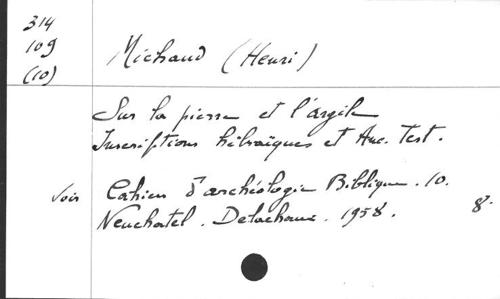 314
109
(10)
Michaud (Henri)
Sur la pierre et l'argile
Inscriptions hébraïques et Anc. Test.
Voir Cahiers d'archéologie Biblique. 10.
Neuchatel. Delachaux. 1958. 8.